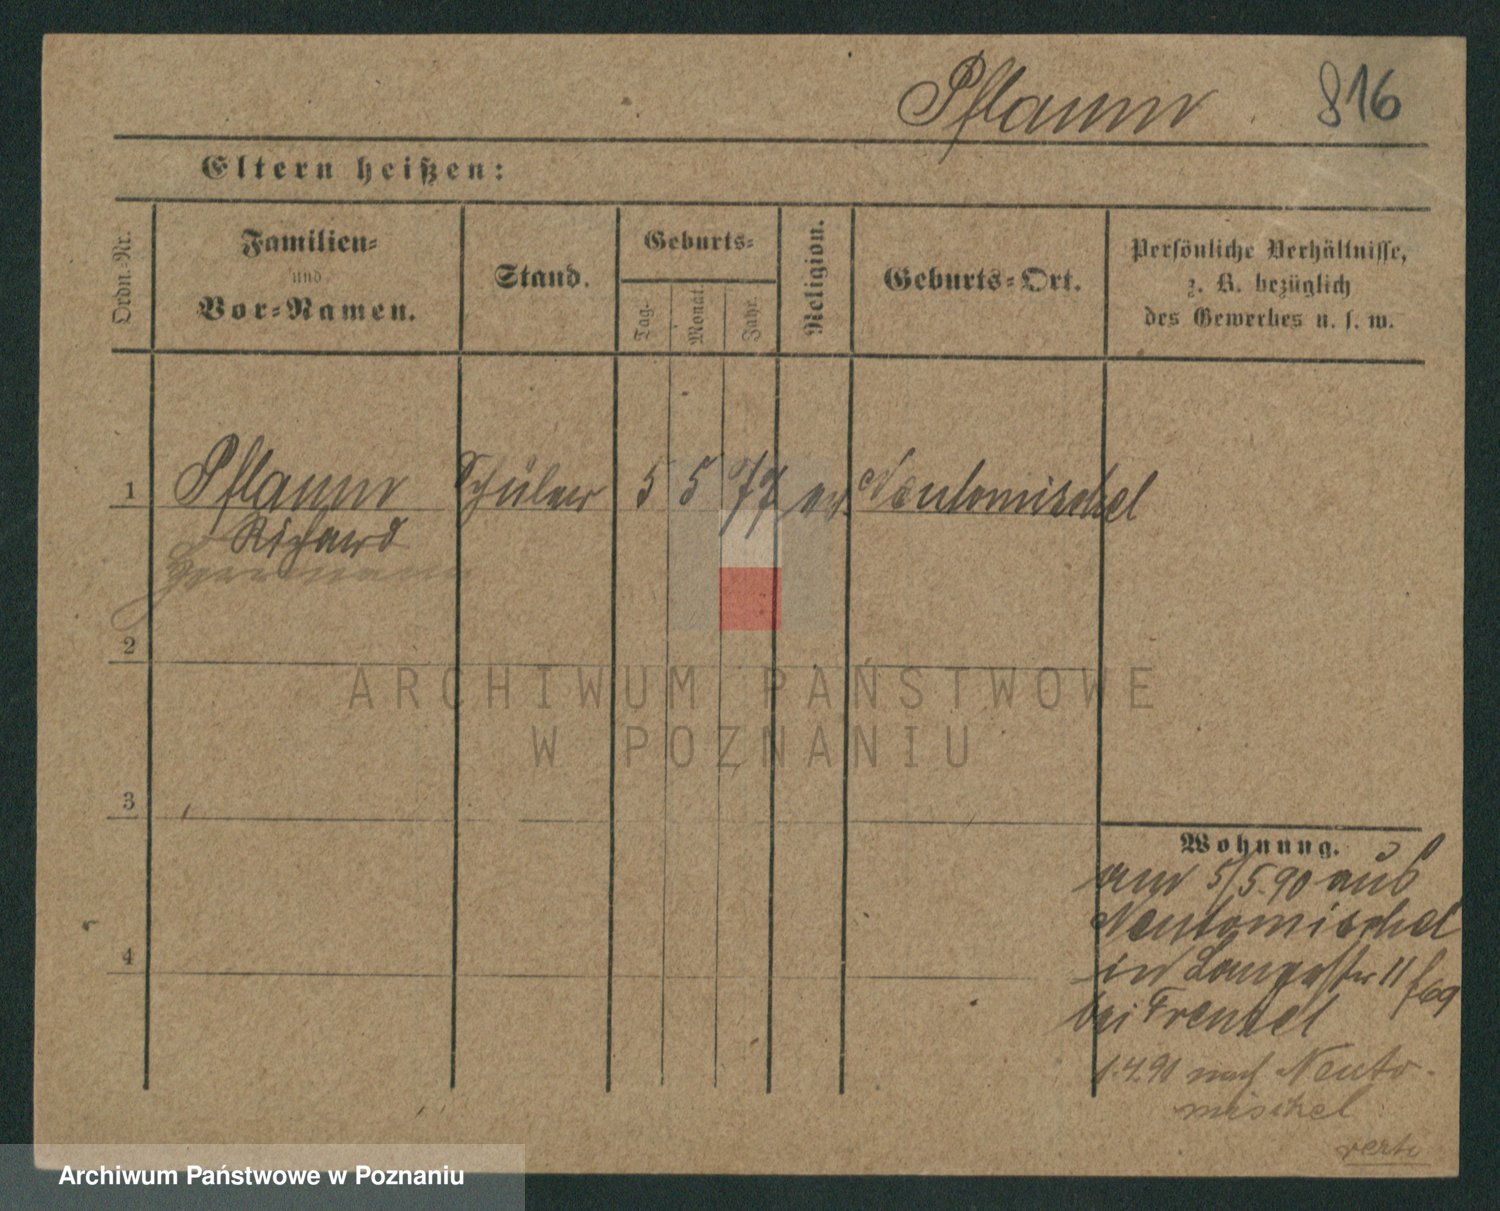 Pflaum 816
Eltern heißen:
Ordn.-Nr.
Familien-
und
Vor-Namen.
Stand.
Geburts-
Tag.
Monat.
Jahr.
Religion.
Geburts-Ort.
Persönliche Verhältnisse,
z. B. bezüglich
des Gewerbes u. s. w.
1 Pflaum Schüler 5 5 77 ev. Neutomischel
Richard
Herrmann
2
3
4
Wohnung.
am 5/5 90 aus
Neutomischel
in Langestr 11
bei Frenzel
1.4.91 nach Neuto-
mischel
verte
ARCHIWUM PAŃSTWOWE
W POZNANIU
Archiwum Państwowe w Poznaniu